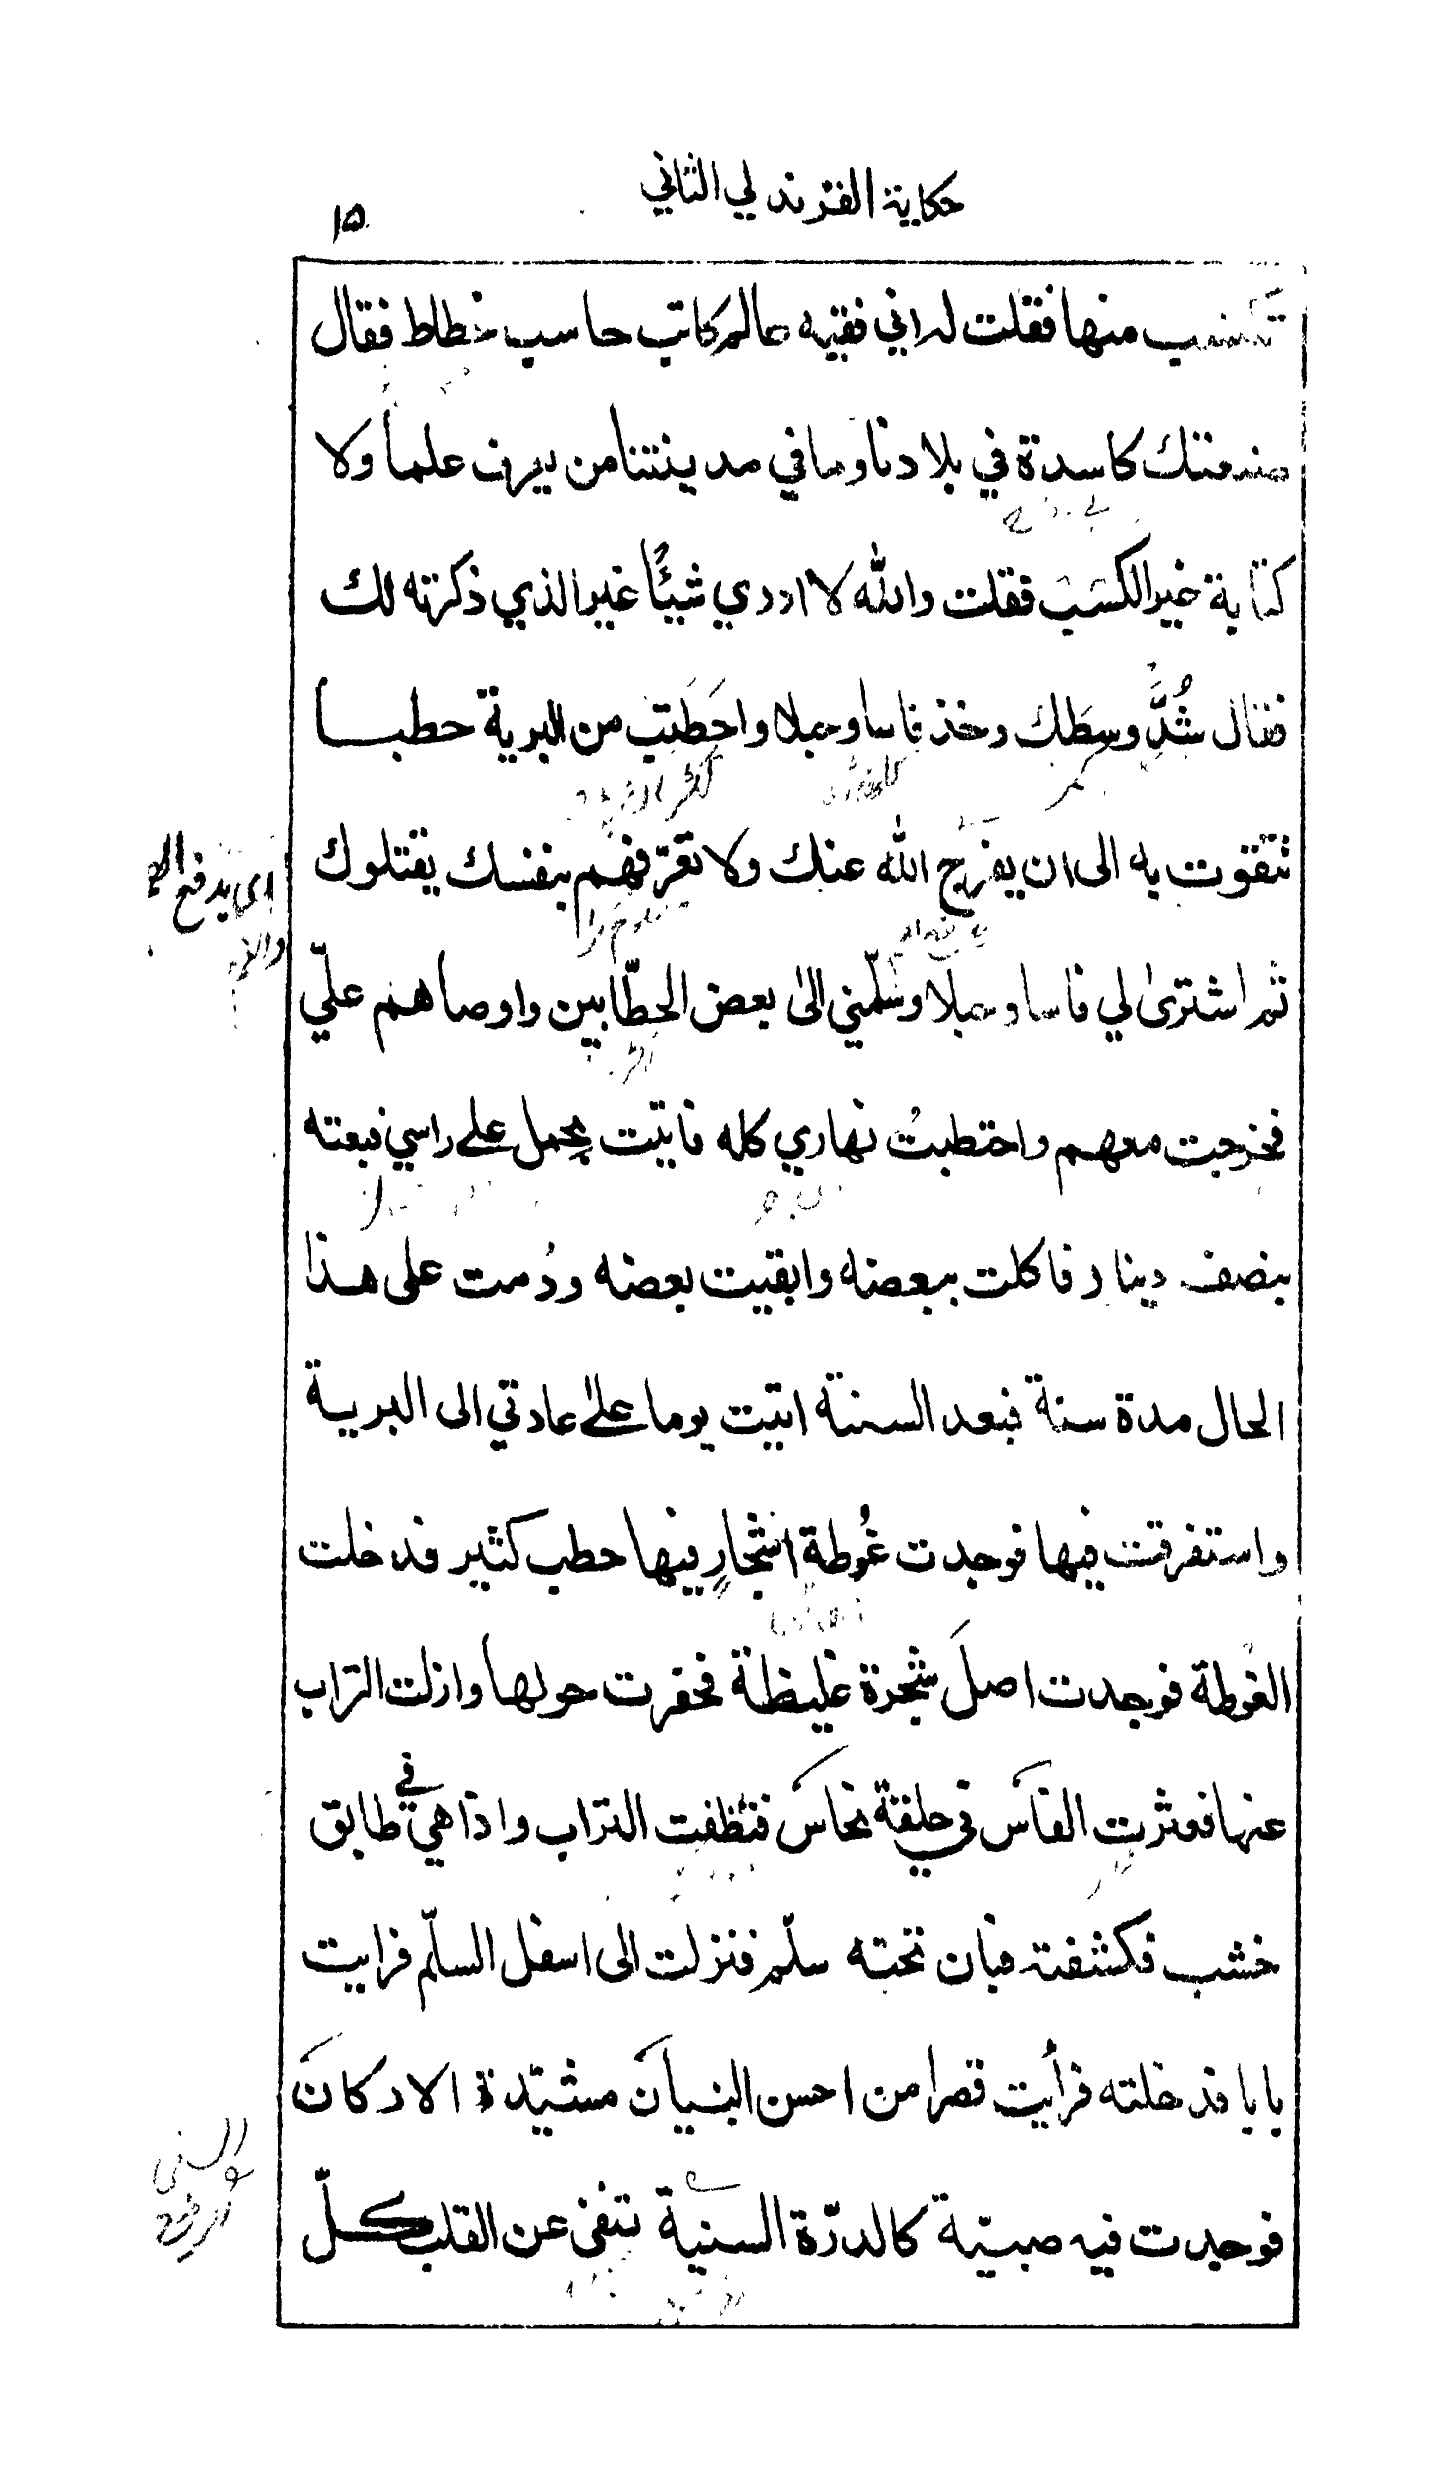 حكاية القرندلي الثاني
١٥
تكتسب منها فقلت له اني فقيه عالم كاتب حاسب خطاط فقال
صنعتك كاسدة في بلادنا وما في مدينتنا من يعرف علما ولا
كتابة غير الكسَبَ فقلت والله لا ادري شيئًا غير الذي ذكرته لك
فقال شُدَّ وسطَك وخذ فاسا وحبلا واحطَبَ من البرية حطبا
تتقوت به الى ان يفرج الله عنك ولا تعرّفهم بنفسك يقتلوك
ثم اشترى لي فاسا وحبلا وسلّمني الى بعض الحطّابين واوصاهم عليّ
فخرجت معهم واحتطبتُ نهاري كله فاتيت بحمل على راسي فبعته
بنصف دينار فاكلت ببعضه وابقيت بعضه ودُمت على هذا
الحال مدة سنة فبعد السنة اتيت يوما على عادتي الى البرية
واستفرقت فيها فوجدت غُوطة اشجارٍ فيها حطب كثير فدخلت
الغوطة فوجدت اصلَ شجرة غليظة فحفرت حولها وازلت التراب
عنها فعثرت الفاس في حلقة نحاس فنظفت التراب واذا هي في طابق
خشب فكشفته فبان تحته سلّم فنزلت الى اسفل السلّم فرايت
بابا فدخلته فرأيت قصرا من احسن البنيان مشيّدة الاركان
فوجدت فيه صبيّة كالدرّة السنية تنفى عن القلب كلّ